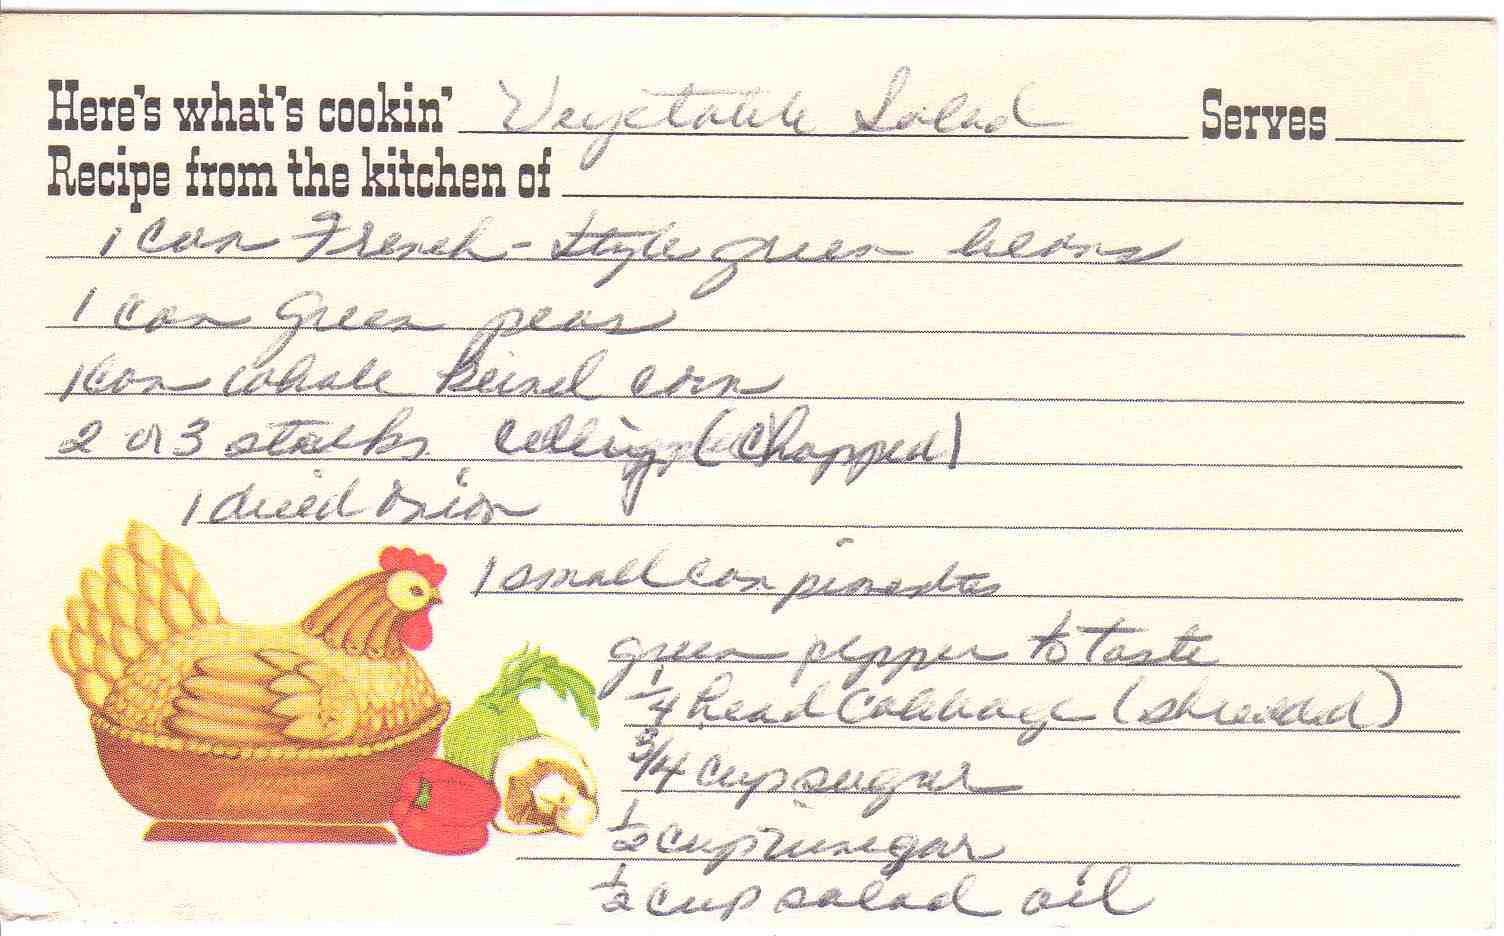 Here's what's cookin' Vegetable Salad Serves
Recipe from the kitchen of
1 can French-style green beans
1 can green peas
1 can whole keinel corn
2 or 3 stalks cellery (chopped)
1 diced onion
1 small can pimentos
green pepper to taste
1/4 head cabbage (shredded)
3/4 cup sugar
1/2 cup vinegar
1/2 cup salad oil